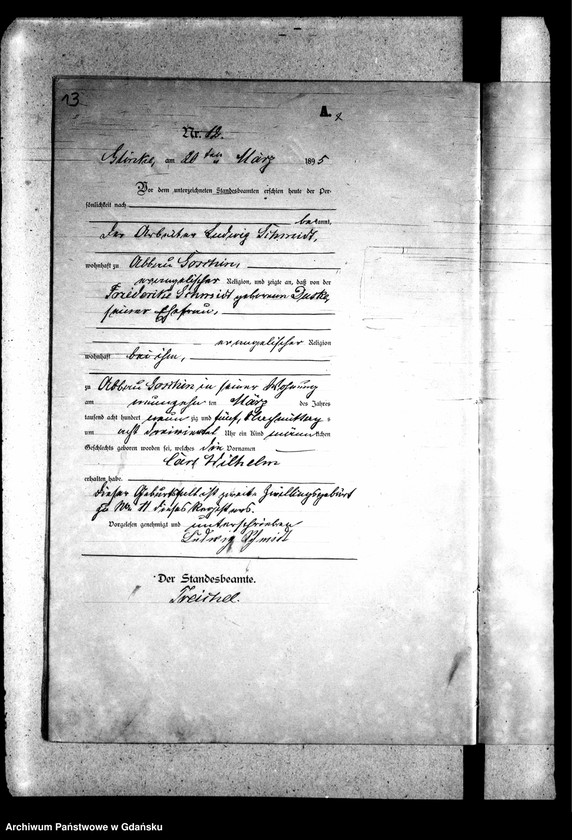 13
A.
Nr. 12.
am 20 ten März 1895
Vor dem unterzeichneten Standesbeamten erschien heute der Per-
sönlichkeit nach
bekannt,
der Arbeiter Ludwig Schmidt,
wohnhaft zu Abbau
evangelischer Religion, und zeigte an, daß von der
Friederike Schmidt geborenen
seiner Ehefrau,
evangelischer Religion
wohnhaft bei ihm,
zu Abbau in seiner Wohnung
am neunzehn ten März des Jahres
tausend acht hundert neun zig und fünf, Nachmittags
um acht dreiviertel Uhr ein Kind männlichen
Geschlechts geboren worden sei, welches die Vornamen
Carl Wilhelm
erhalten habe.
Dieser Geburtsfall ist zweite Zwillingsgeburt
zu No 11 dieses Registers.
Vorgelesen genehmigt und unterschrieben
Ludwig Schmidt
Der Standesbeamte.
Treichel.
Archiwum Państwowe w Gdańsku